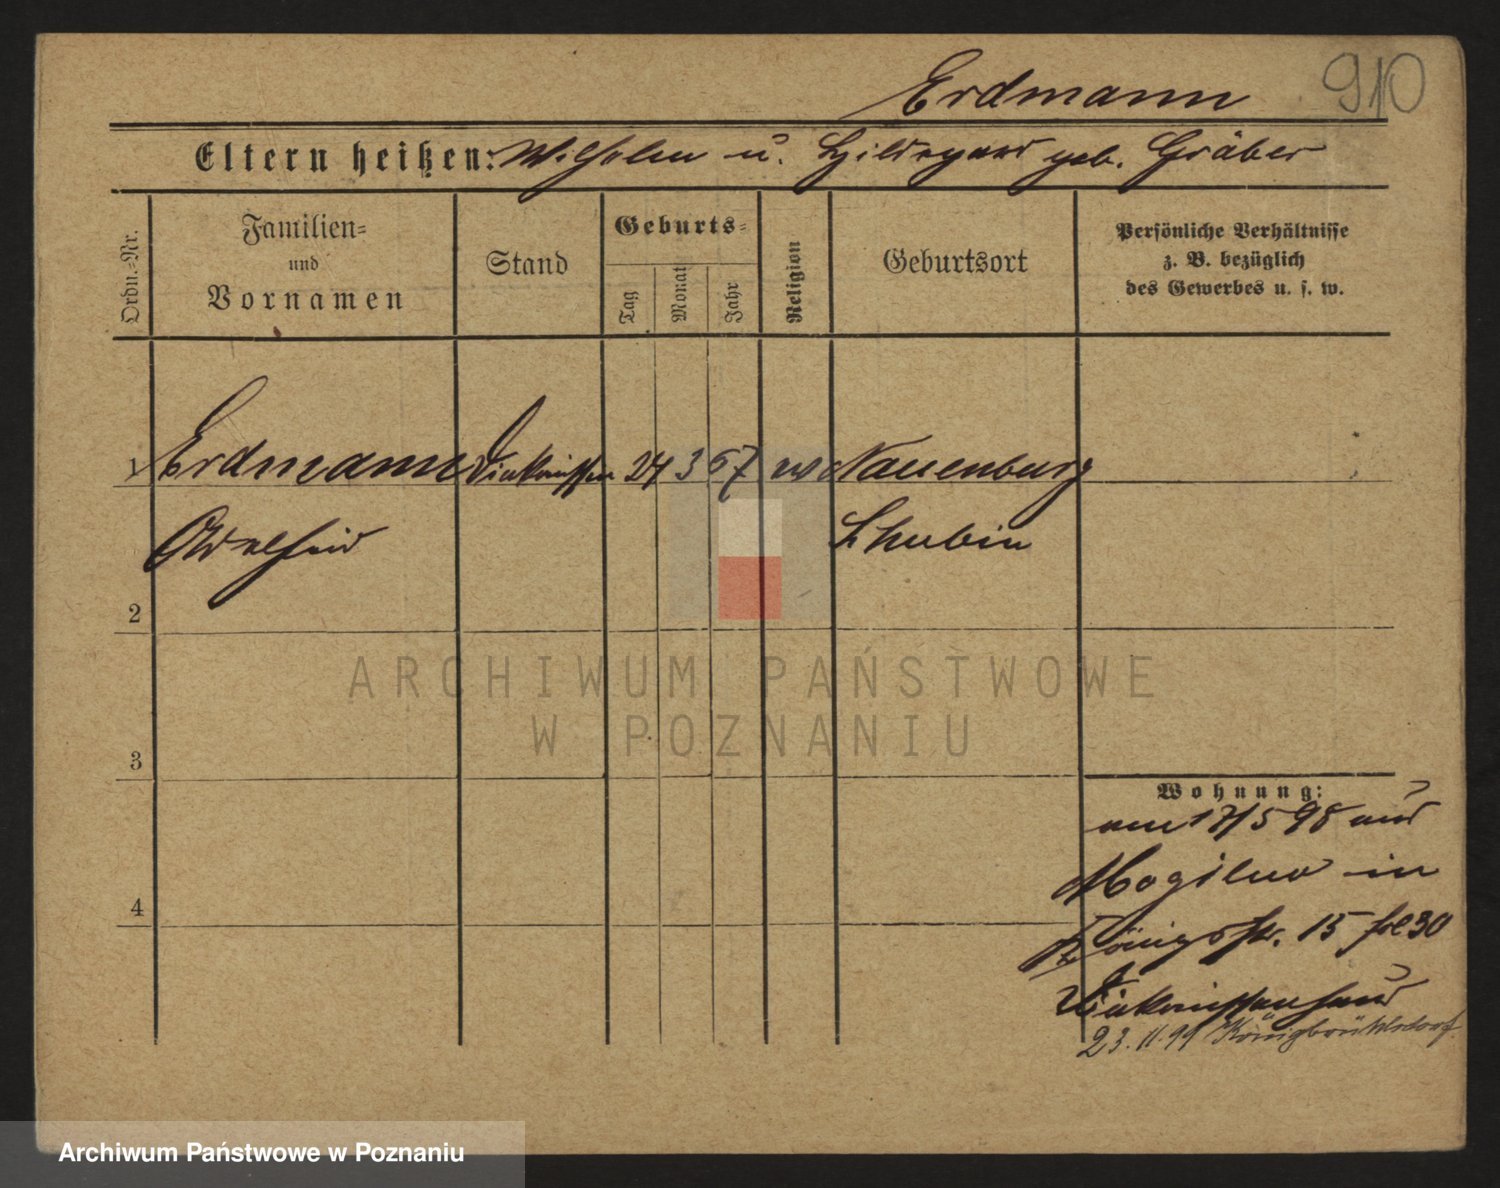 Erdmann 910
Eltern heißen: Wilhelm u. Hildegard geb. Gräber
Ordn.-Nr.
Familien-
und
Vornamen
Stand
Geburts-
Tag
Monat
Jahr
Religion
Geburtsort
Persönliche Verhältnisse
z. B. bezüglich
des Gewerbes u. s. w.
1 Erdmann Diakonissin 24 3 67 ev Nauenburg
Adelheid Schubin
2
3
4
Wohnung:
am 17/5 98 aus
Mogilno in
Königsstr. 15 fol 30
Diakonissenhaus
23.11.99
ARCHIWUM PAŃSTWOWE
W POZNANIU
Archiwum Państwowe w Poznaniu